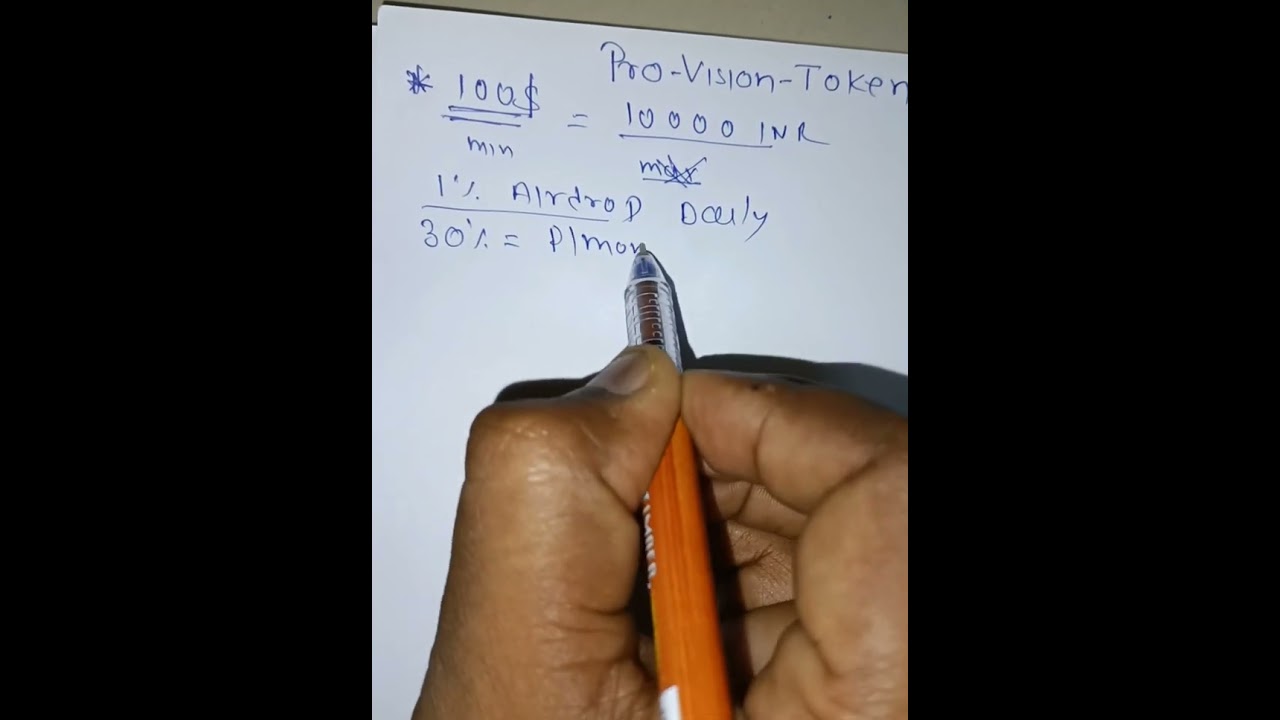 Pro-Vision-Token
* 100$ = 10000 INR
min max
1% Airdrop Daily
30% = P/mon